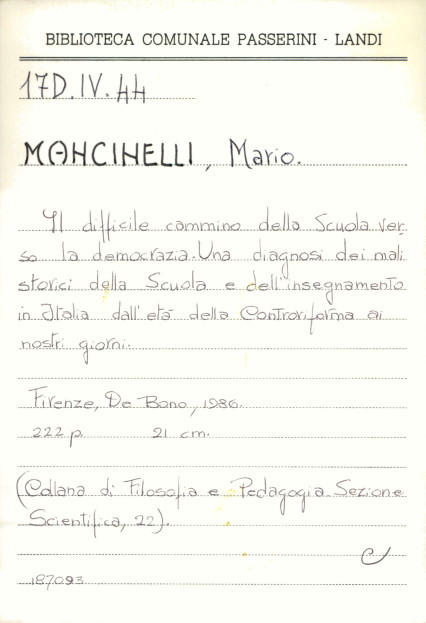 BIBLIOTECA COMUNALE PASSERINI - LANDI
17D.IV.44
MONCINELLI, Mario.
Il difficile cammino della Scuola ver
so la democrazia. Una diagnosi dei mali
storici della Scuola e dell'insegnamento
in Italia dall'età della Controriforma ai
nostri giorni.
Firenze, De Bono, 1986.
222 p. 21 cm.
(Collana di Filosofia e Pedagogia. Sezione
Scientifica, 22).
187093